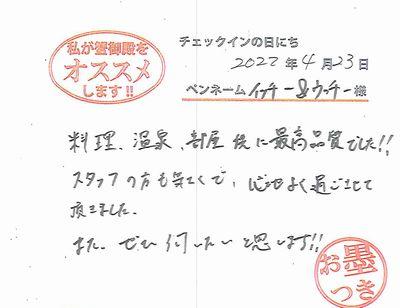 私が蟹御殿を
オススメ
します!!
チェックインの日にち
2022年4月23日
ペンネーム イッチー&ウッチー様
料理、温泉、部屋 供に最高品質でした!!
スタッフの方も気さくで、心地よく過ごさせて
頂きました。
また、ぜひ伺いたいと思います!!
お墨
つき